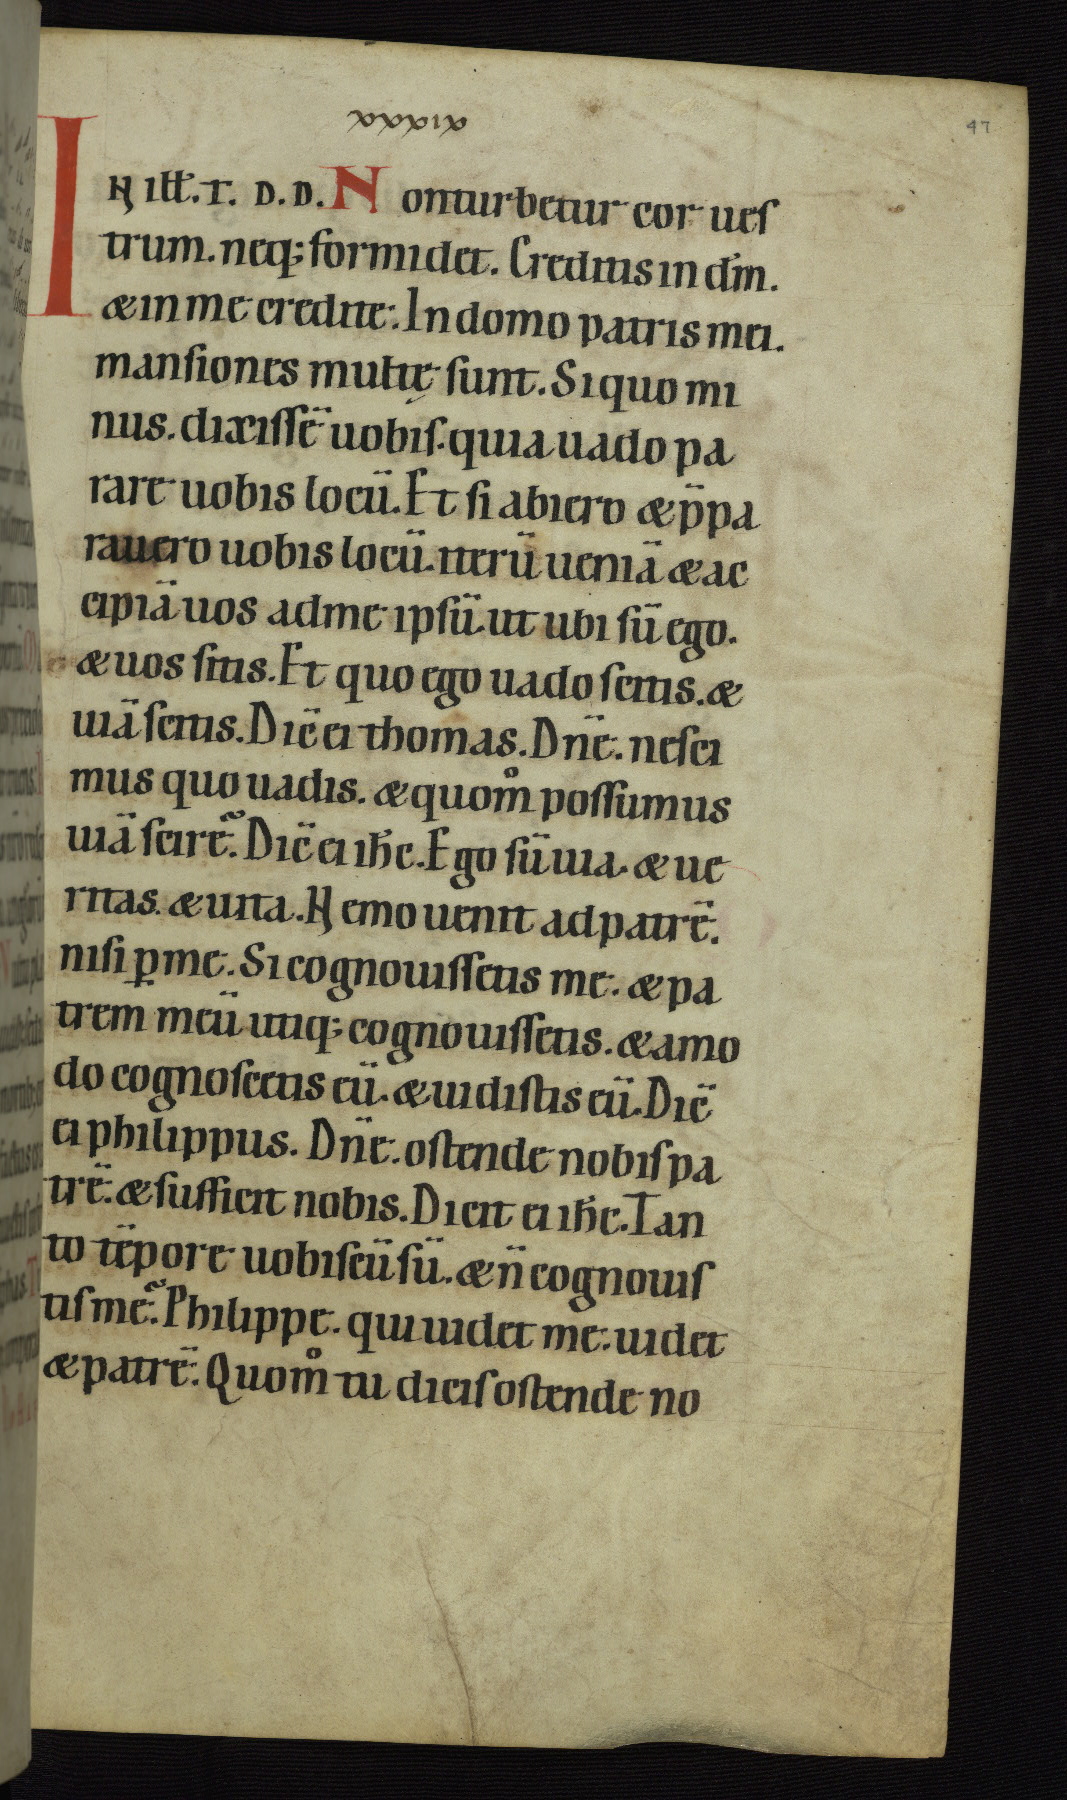 47
IN ill̄. T. D. D. Non turbetur cor ueſ
trum. neq; formidet. Creditis in dm̄.
& in me credite. In domo patris mei.
manſiones multę ſunt. Si quo mi
nus. dixiſſē uobiſ. quia uado pa
rare uobis locū. Et ſi abiero & p̄pa
rauero uobis locū. iterū ueniā & ac
cipiā uos ad me ipſū. ut ubi ſū ego.
& uos ſitis. Et quo ego uado ſcitis. &
uiā ſcitis. Dic̄ ei thomas. Dn̄e. neſci
mus quo uadis. & quom̊ poſſumus
uiā ſcire? Dic̄ ei ih̄c. Ego ſū uia. & ue
ritas. & uita. Nemo uenit ad patrē.
niſi ꝑ me. Si cognouiſſetis me. & pa
trem meū utiq; cognouiſſetis. & amo
do cognoſcetis eū. & uidiſtis eū. Dic̄
ei philippus. Dn̄e. oſtende nobiſ pa
trē. & ſufficit nobis. Dicit ei ih̄c. Tan
to tēpore uobiſcū ſū. & n̄ cognouiſ
tiſ me? Philippe. qui uidet me. uidet
& patrē. Quom̊ tu diciſ oſtende no